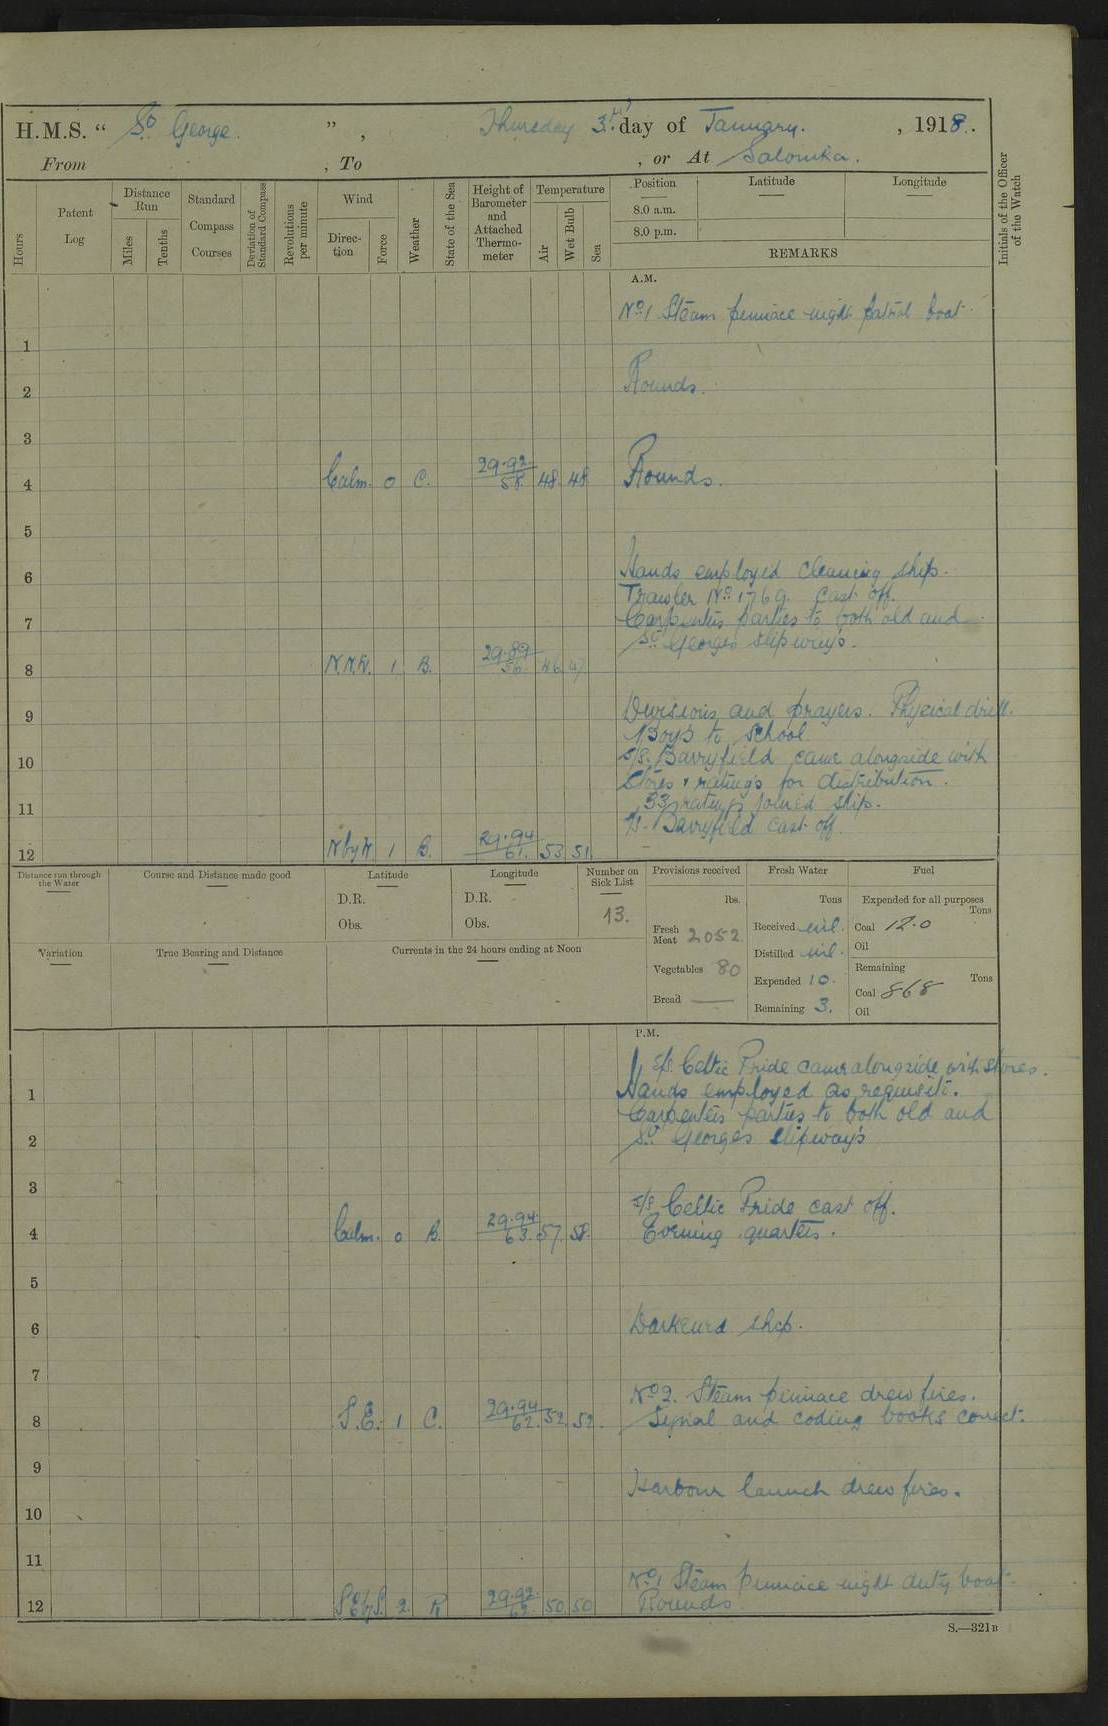 H.M.S. “ St George. ” , Thursday 3rd day of January. , 1918.
From , To , or At Salonika.
Hours
Patent Log
Distance Run
Miles
Tenths
Standard Compass Courses
Deviation of Standard Compass
Revolutions per minute
Wind
Direction
Force
Weather
State of the Sea
Height of Barometer and Attached Thermometer
Temperature
Air
Wet Bulb
Sea
Position
8.0 a.m.
8.0 p.m.
Latitude
Longitude
REMARKS
Initials of the Officer of the Watch
A.M.
No 1 Steam pinnace night patrol boat
1
2 Rounds.
3
4 Calm. 0 C. 29.92 58 48 48 Rounds.
5
6 Hands employed cleaning ship.
Trawler No 1769. cast off.
7 Carpenters parties to both old and
St Georges slipways.
8 N.N.W. 1 B. 29.89 56. 46 47
9 Divisions and prayers. Physical drill.
Boys to School.
10 S/S. Barryfield came alongside with
Stores & ratings for distribution.
11 33 ratings joined ship.
S/S. Barryfield cast off.
12 N by W 1 B. 29.94 61. 53 51
Distance run through the Water
Course and Distance made good
Latitude
D.R.
Obs.
Longitude
D.R.
Obs.
Number on Sick List
13.
Provisions received
lbs.
Fresh Meat 2052
Vegetables 80
Bread —
Fresh Water
Tons
Received nil.
Distilled nil.
Expended 10.
Remaining 3.
Fuel
Expended for all purposes
Tons
Coal 12.0
Oil
Remaining
Tons
Coal 868
Oil
Variation
True Bearing and Distance
Currents in the 24 hours ending at Noon
P.M.
S/S. Celtic Pride came alongside with stores.
1 Hands employed as requisite.
Carpenters parties to both old and
2 St Georges slipways
3
S/S Celtic Pride cast off.
4 Calm. 0 B. 29.94 63. 57. 58. Evening quarters.
5
6 Darkened ship.
7
No 2. Steam pinnace drew fires.
8 S.E. 1 C. 29.94 62. 52 52. Signal and coding books correct.
9
Harbour launch drew fires.
10
11
No 1 Steam pinnace night duty boat.
12 SE by S. 2. R 29.92 62. 50 50 Rounds
S.—321B